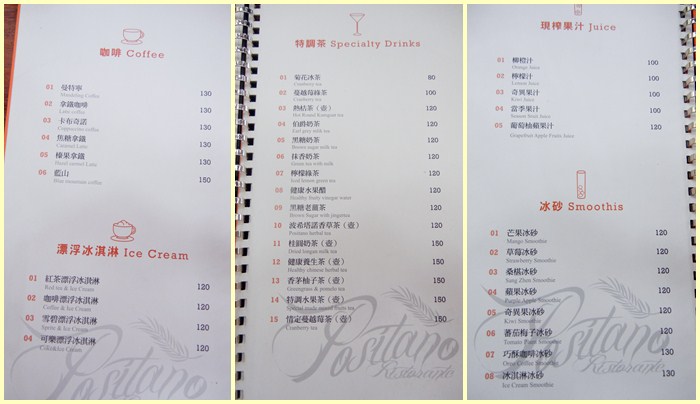 咖啡 Coffee
01 曼特寧 130
Mandeling Coffee
02 拿鐵咖啡 130
Latte coffee
03 卡布奇諾 130
Cappuccino coffee
04 焦糖拿鐵 130
Caramel Latte
05 榛果拿鐵 130
Hazel caramel Latte
06 藍山 150
Blue mountain coffee
漂浮冰淇淋 Ice Cream
01 紅茶漂浮冰淇淋 120
Red tea & Ice Cream
02 咖啡漂浮冰淇淋 120
Coffee & Ice Cream
03 雪碧漂浮冰淇淋 120
Sprite & Ice Cream
04 可樂漂浮冰淇淋 120
Coke&Ice Cream
Positano
特調茶 Specialty Drinks
01 菊花冰茶 80
Cranberry tea
02 蔓越莓綠茶 100
Cranberry tea
03 熱桔茶（壺） 120
Hot Round Kumquat tea
04 伯爵奶茶 120
Earl grey milk tea
05 黑糖奶茶 120
Brown sugar milk tea
06 抹香奶茶 120
Green tea with milk
07 檸檬綠茶 120
Iced lemon green tea
08 健康水果醋 120
Healthy fruity vinegar water
09 黑糖老薑茶 120
Brown Sugar with gingertea
10 波希塔諾香草茶（壺） 120
Positano herbal tea
11 桂圓奶茶（壺） 150
Dried longan milk tea
12 健康養生茶（壺） 150
Healthy chinese herbal tea
13 香茅柚子茶（壺） 150
Lemongrass & pomelo tea
14 特調水果茶（壺） 150
15 情定蔓越莓茶（壺） 150
Cranberry tea
Positano
Ristorante
現榨果汁 Juice
01 柳橙汁 100
Orange Juice
02 檸檬汁 100
Lemon Juice
03 奇異果汁 100
Kiwi Juice
04 當季果汁 100
Season Fruit Juice
05 葡萄柚蘋果汁 120
Grapefruit Apple Fruits Juice
冰砂 Smoothis
01 芒果冰砂 120
Mango Smoothie
02 草莓冰砂 120
Strawberry Smoothie
03 桑椹冰砂 120
Sang Zhen Smoothie
04 蘋果冰砂 120
Purple Apple Smoothie
05 奇異果冰砂 120
Kiwi Smoothie
06 蕃茄梅子冰砂 120
Tomato Plum Smoothie
07 巧酥咖啡冰砂 120
Oreo Coffee Smoothie
08 冰淇淋冰砂 130
Ice Cream Smoothie
Positano
Ristorante